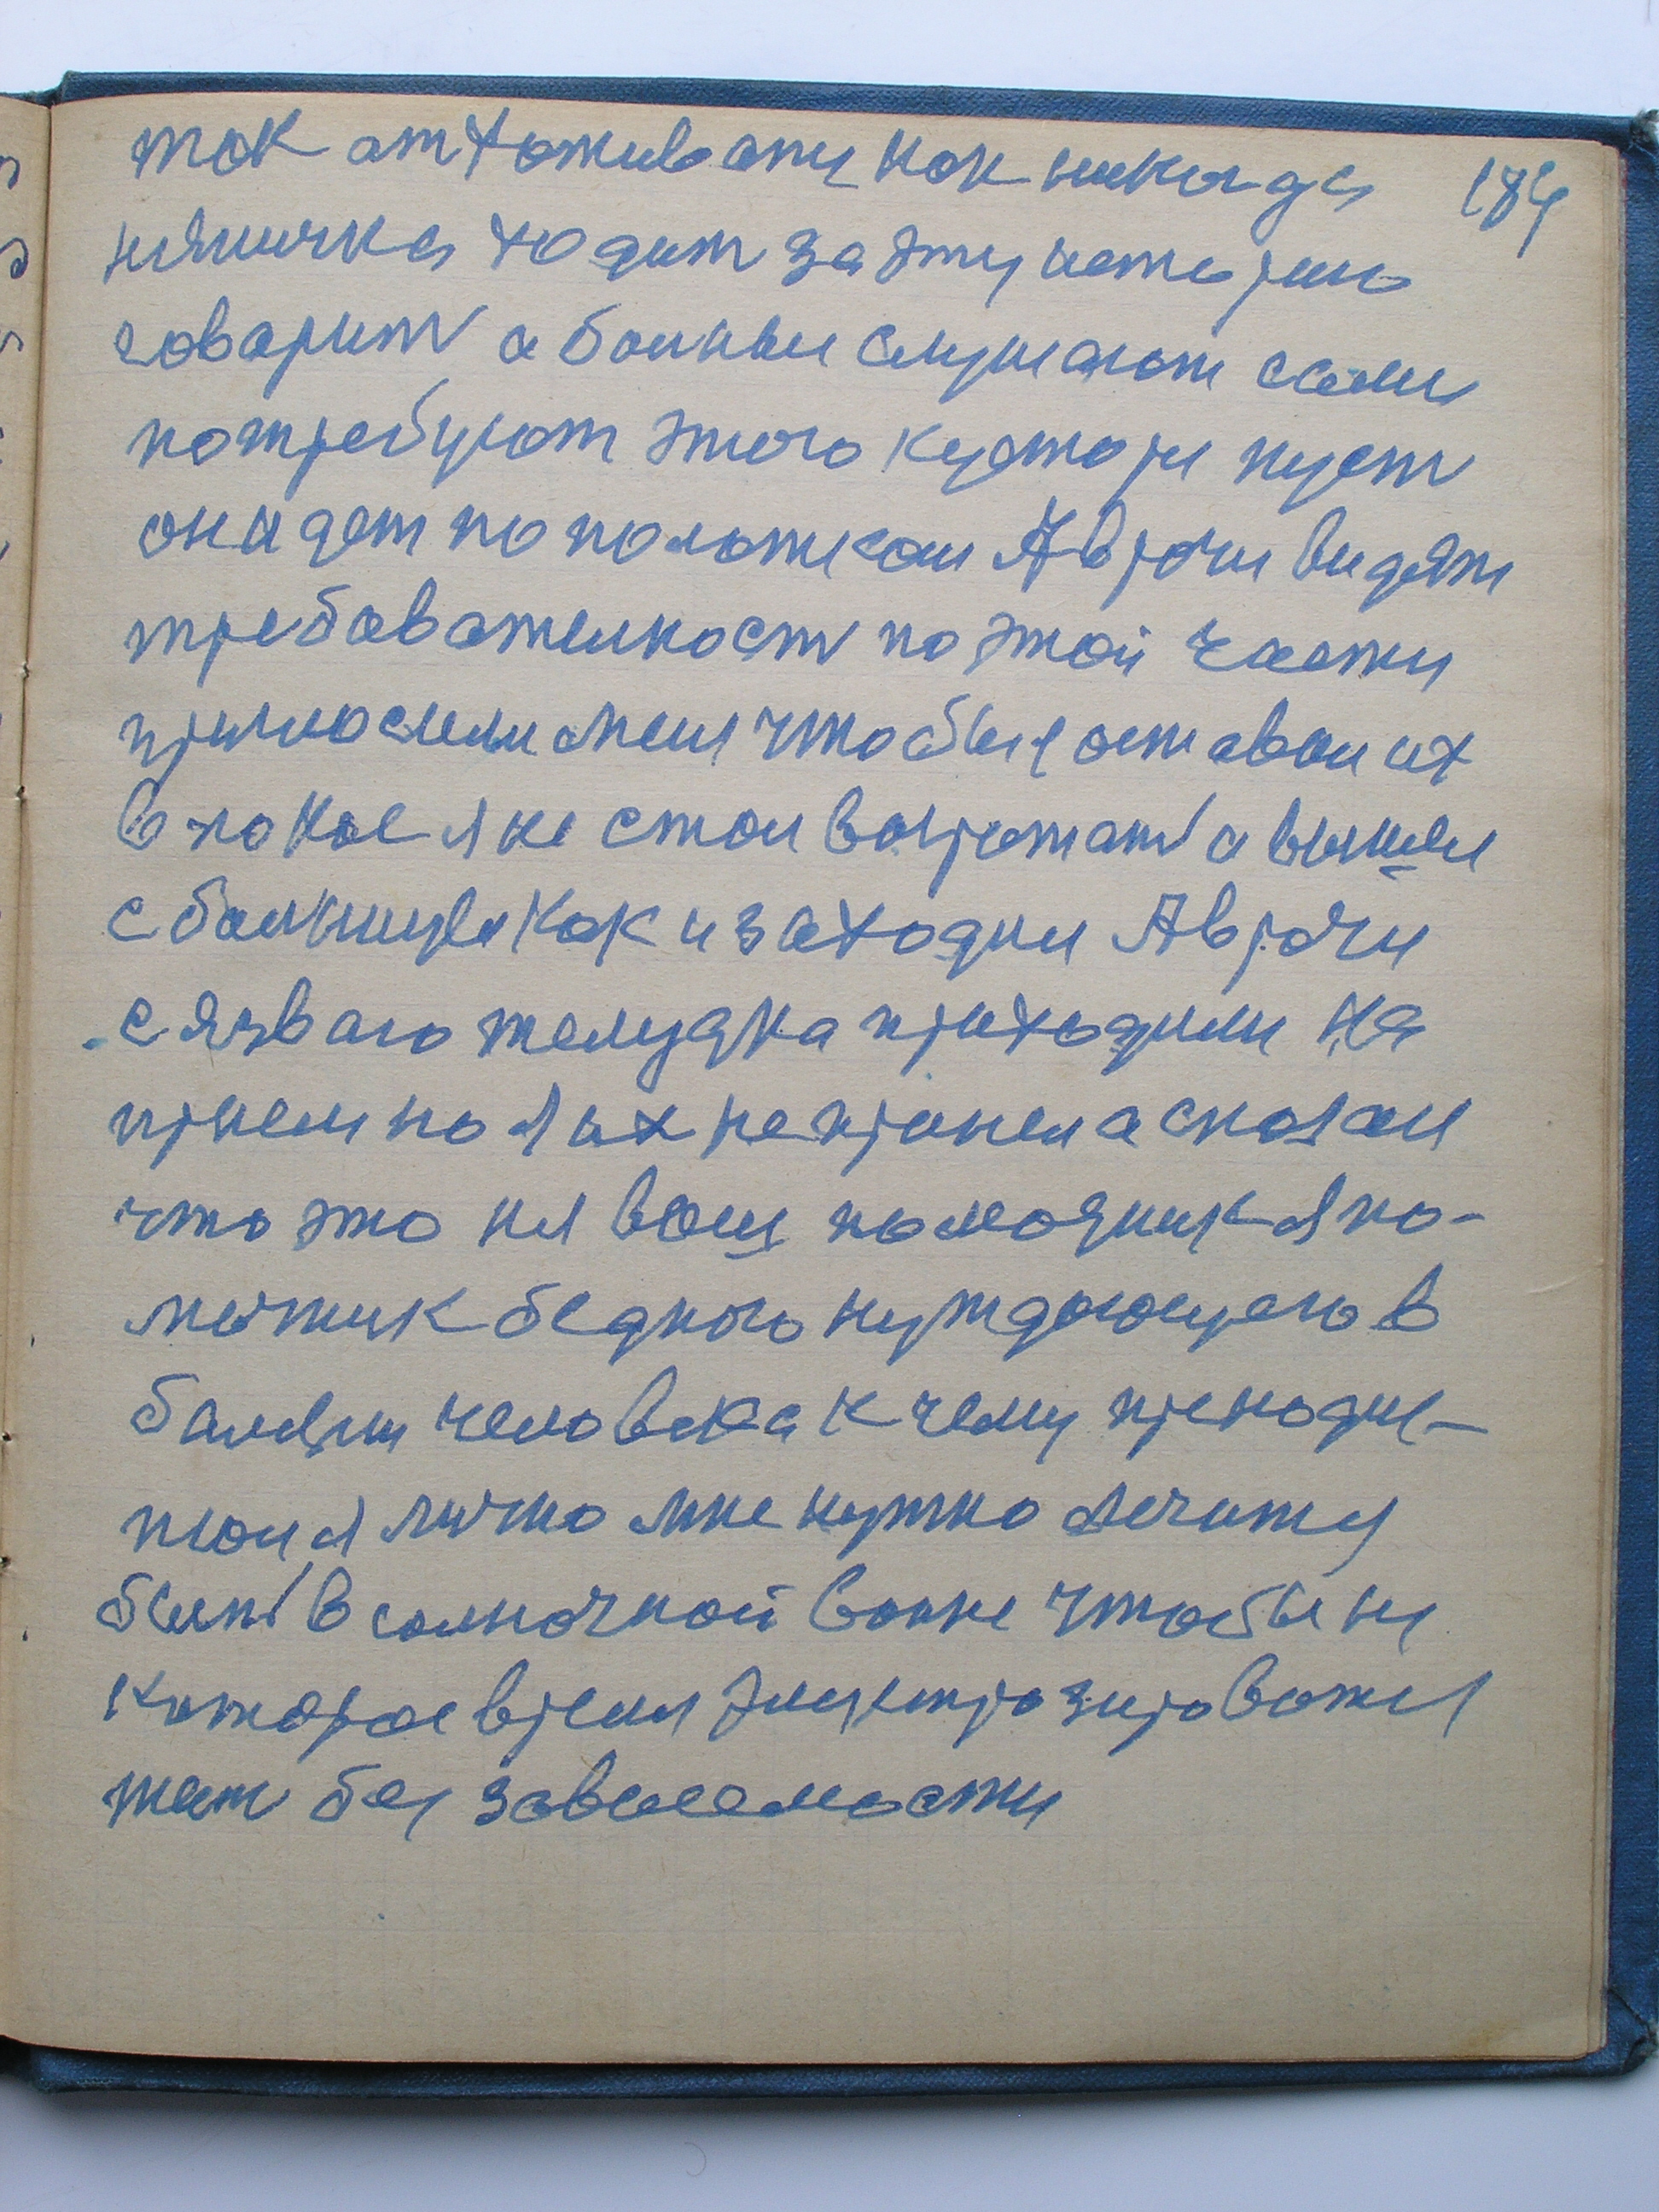 так отхаживати как никогда 184
няничка ходит за эту историю
говарит а больные слушают если
потребуют этого куратора пуст
он идет по полоткам А врачи видят
требователност по этой части
приносили меня чтобы я оставил их
в покое я не стал возрожать а вышел
с больницы как и заходил А врачи
с язваго желудка приходили на
прием но я их не принел а сказал
что это ня ваш помощник я по-
мочник бедного нуждающего в
балезни человека к чему преподне-
лично мне нужно лечится
быть в солночной ванне чтобы не
которое время электрозироватся
жит без зависемости